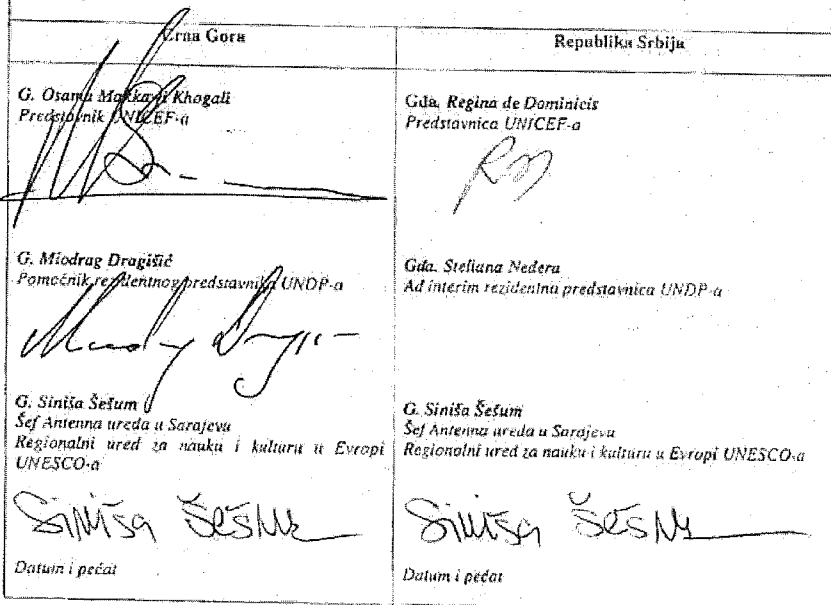 Crna Gora
G. Osama Makkawi Khogali
Predstavnik UNICEF-a
G. Miodrag Dragišić
Pomoćnik rezidentnog predstavnika UNDP-a
G. Siniša Šešum
Šef Antenna ureda u Sarajevu
Regionalni ured za nauku i kulturu u Evropi
UNESCO-a
Siniša Šešum
Datum i pečat
Republika Srbija
Gđa. Regina de Dominicis
Predstavnica UNICEF-a
Gđa. Steliana Nedera
Ad interim rezidentna predstavnica UNDP-a
G. Siniša Šešum
Šef Antenna ureda u Sarajevu
Regionalni ured za nauku i kulturu u Evropi UNESCO-a
Siniša Šešum
Datum i pečat